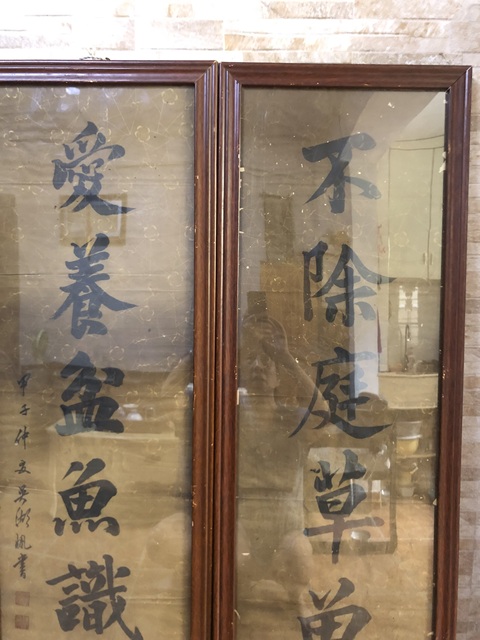 不除庭草
愛養盆魚識
甲子仲夏吳湖帆書